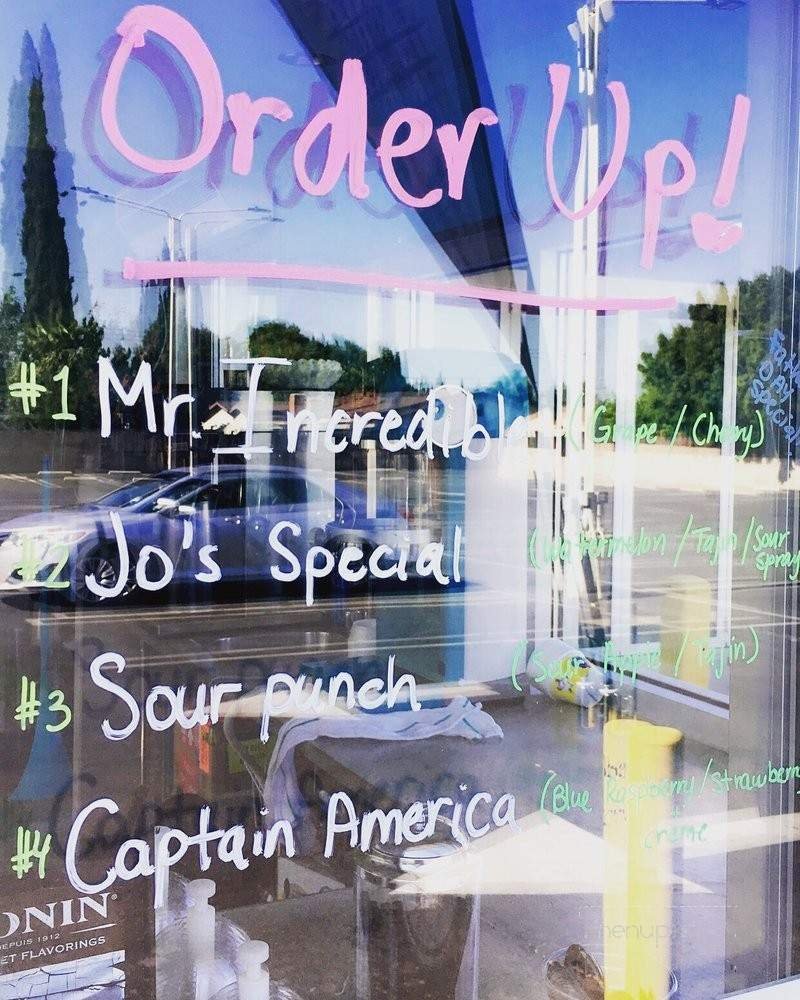 Order Up!
#1 Mr. Incredible (Grape / Cherry)
Day
Special
#2 Jo's Special (Watermelon / Tajin / Sour spray
#3 Sour punch (Sour Apple / Tajin)
#4 Captain America (Blue Raspberry / Strawberry
creme
ONIN®
DEPUIS 1912
ET FLAVORINGS
menupix